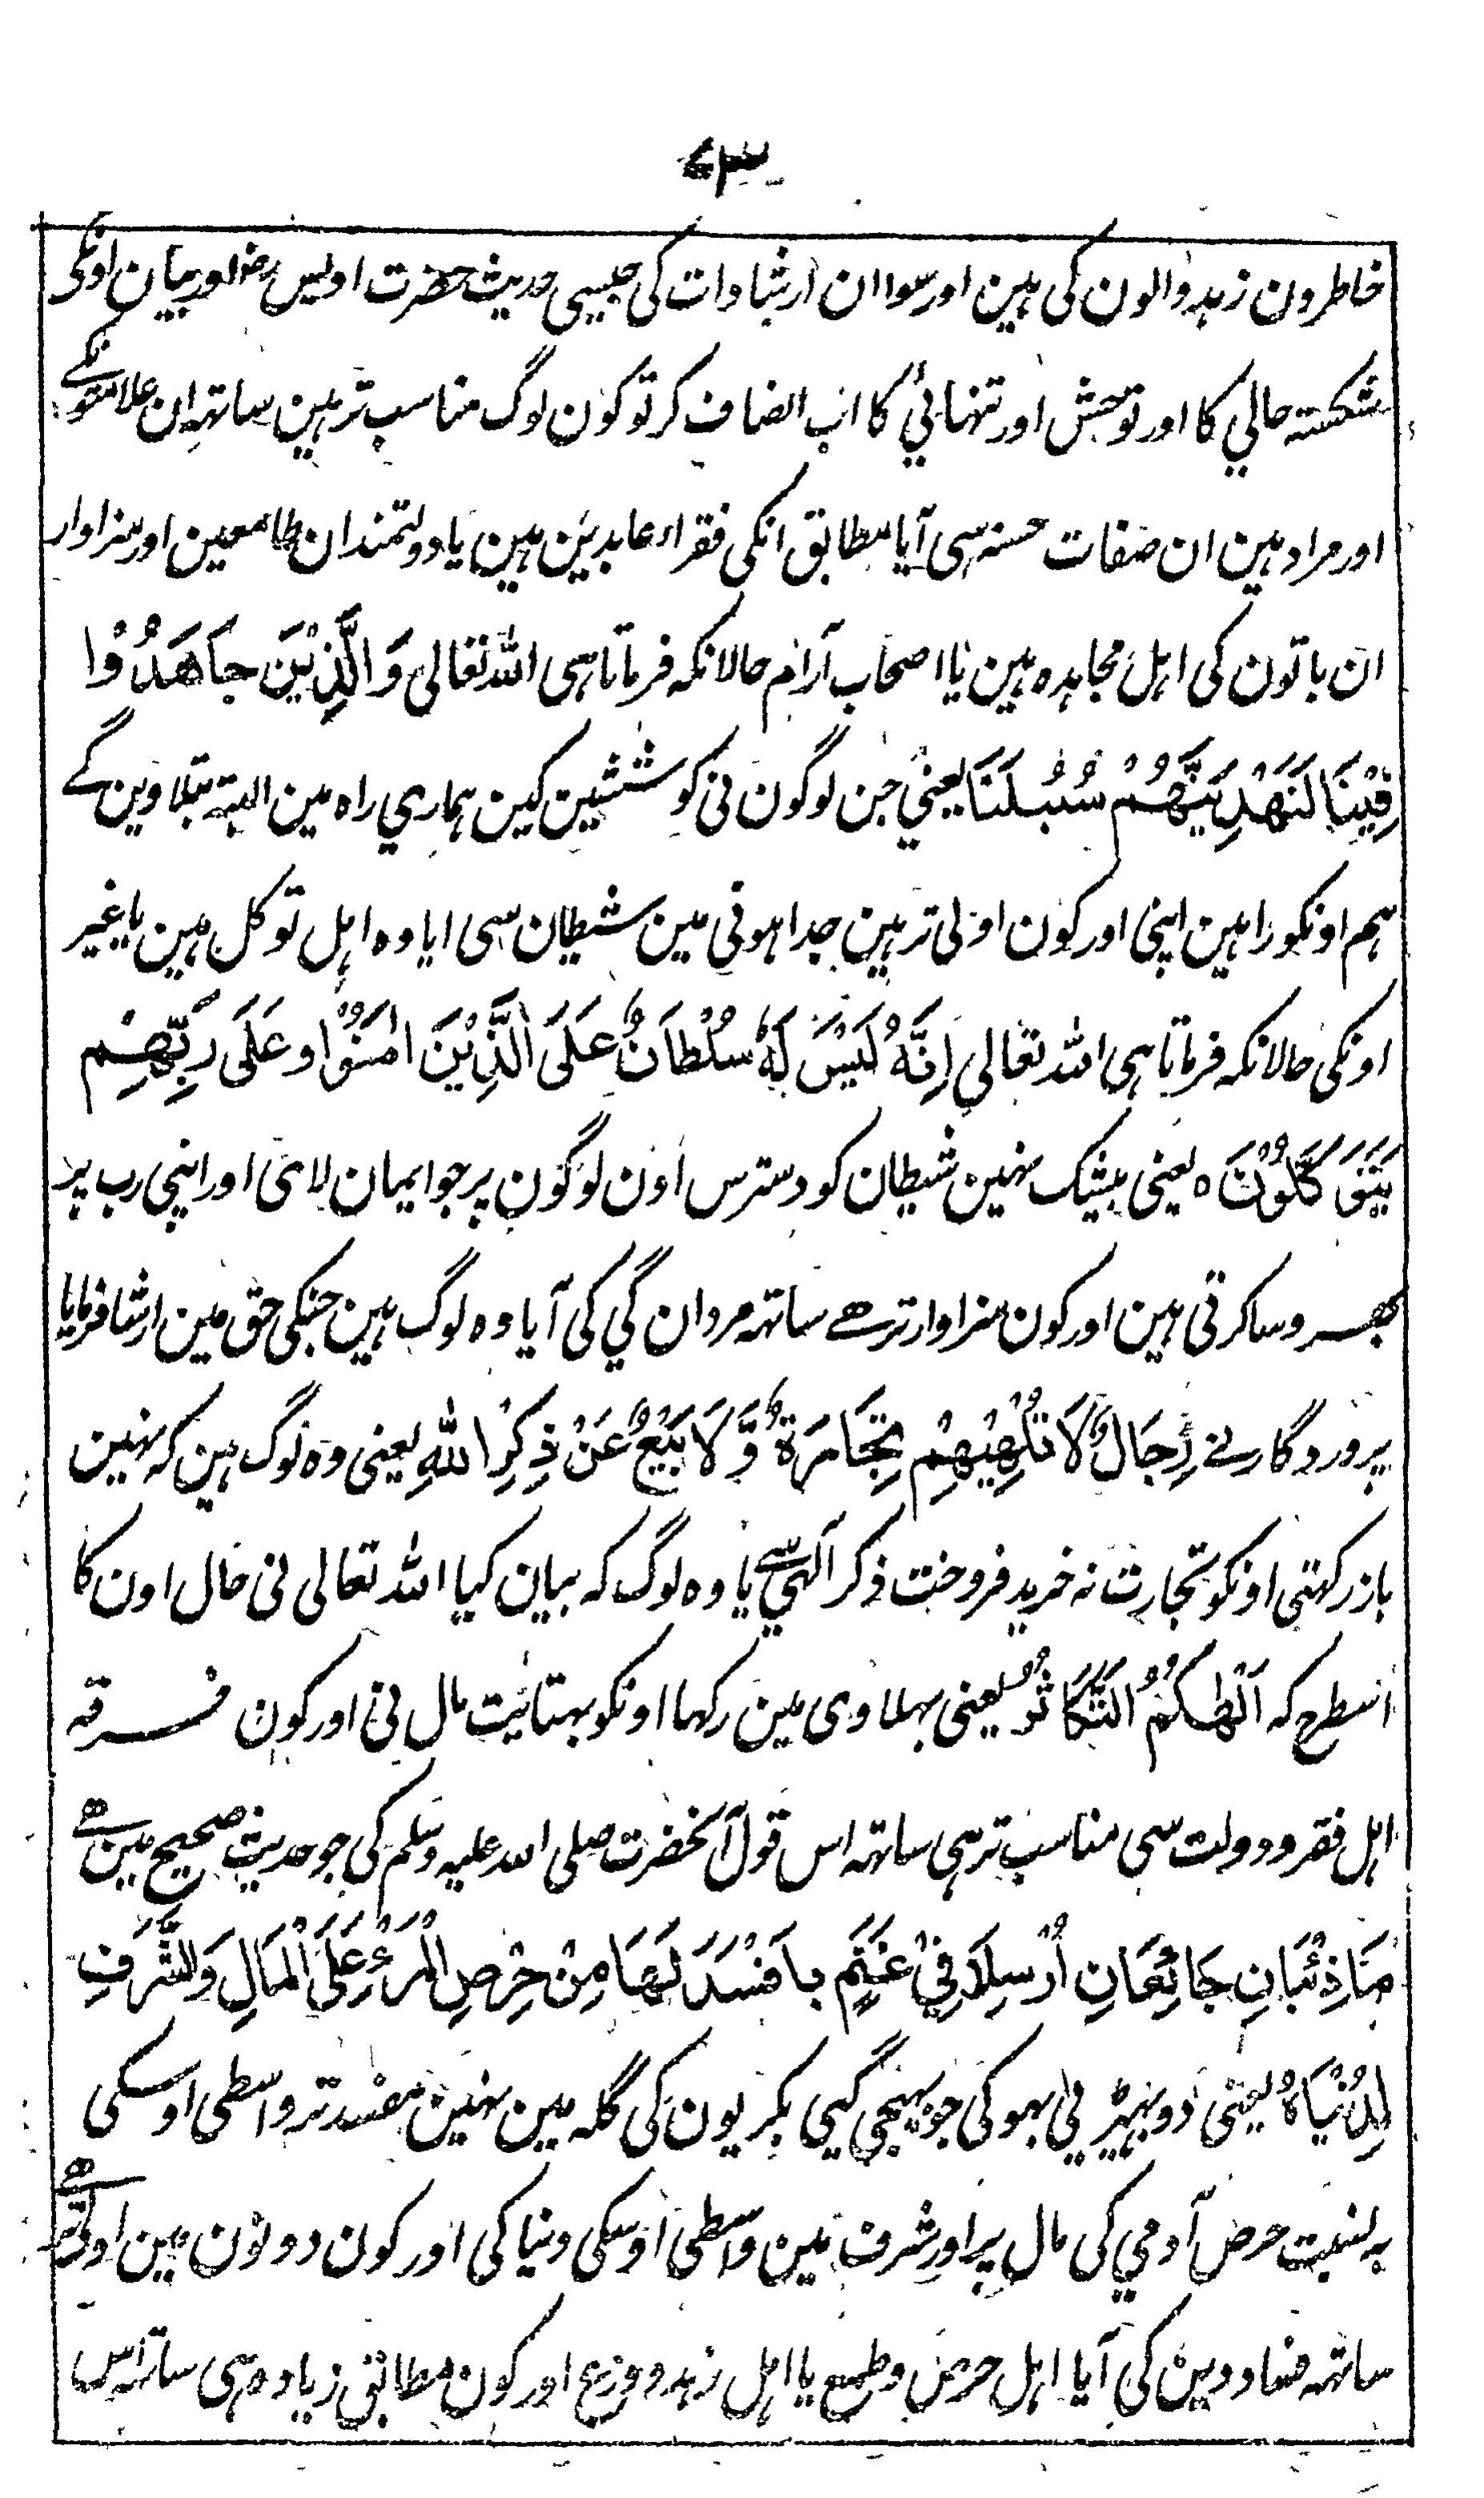 ۷۳
خاطرون زہد والون کی ہین اور سوا ان ارشادات کی جیسی حدیث حضرت اویس رض اور بیان اونکی
شکستہ حالي کا اور توحش اور تنہائي کا اب انصاف کر تو کون لوگ مناسب تر ہین ساتہہ ان علامتونکے
اور مراد ہین ان صفات حسنہ سی آیا مطابق انکی فقراء عابدین ہین یا دولتمندان طامعین اور سزاوار
ان باتون کی اہل مجاہدہ ہین یا اصحاب آرام حالانکہ فرماتا ہی اللہ تعالی وَالَّذِیْنَ جَاهَدُوْا
فِیْنَا لَنَهْدِیَنَّهُمْ سُبُلَنَا یعنی جن لوگون نی کوششین کین ہماري راہ مین البتہ بتلاوین گے
ہم اونکو راہین اپنی اور کون اولی تر ہین جدا ہونی مین شیطان سی ایا وہ اہل توکل ہین یا غیر
اونکی حالانکہ فرماتا ہی اللہ تعالي اِنَّهُ لَیْسَ لَهٗ سُلْطَانٌ عَلَى الَّذِیْنَ اٰمَنُوْا وعَلَى رَبِّهِمْ
یَتَوَكَّلُوْنَ ه یعنی بیشک نہین شیطان کو دسترس اون لوگون پر جو ایمان لاۓ اور اپنی رب پر
بھروسا کرتی ہین اور کون سزاوار تر ہے ساتہہ مردان گي کی آیا وہ لوگ ہین جنکی حق مین ارشا فرمایا
پروردگار نے رِجَالٌ لَا تُلْهِیْهِمْ تِجَارَةٌ وَّلَا بَیْعٌ عَنْ ذِكِرْ اللهِ یعنی وہ لوگ ہین کہ نہین
باز رکہتی اونکو تجارت نہ خرید فروخت ذکر الٰہي سے یا وہ لوگ کہ بیان کیا اللہ تعالی نی حال اون کا
اسطرح کہ اَلْهٰكُمُ التَّكَاثُرُ یعنی بہلاوی مین رکہا اونکو بہتائیت مال نی اور کون فرقہ
اہل فقر و دولت سی مناسب تر ہی ساتہہ اس قول آنحضرت صلی اللہ علیہ وسلم کی جو حدیث صحیح مین ہے
مَاذِئْبَانِ جَائِعَانِ اُرْسِلَا فِیْ غَنَمٍ بِاَفْسَدَ لَهَا مِنْ حِرْصِ الْمَرْءِ عَلَى الْمَالِ وَالشَّرَفِ
لِدُنْیَاهُ یعنی دو بہیڑ ئي بہوکی جو بہیجي گیي بکریون کی گلہ مین نہین مفسد تر واسطی اوسکی
بہ نسبت حرص آدمي کی مال پر اور شرف مین واسطی اوسکی دنیا کی اور کون دونون مین اولی تر ہے
ساتہہ فساد دین کی آیا اہل حرص وطمع یا اہل زہد و ورع اور کون مطابق زیادہ ہی ساتہہ اس